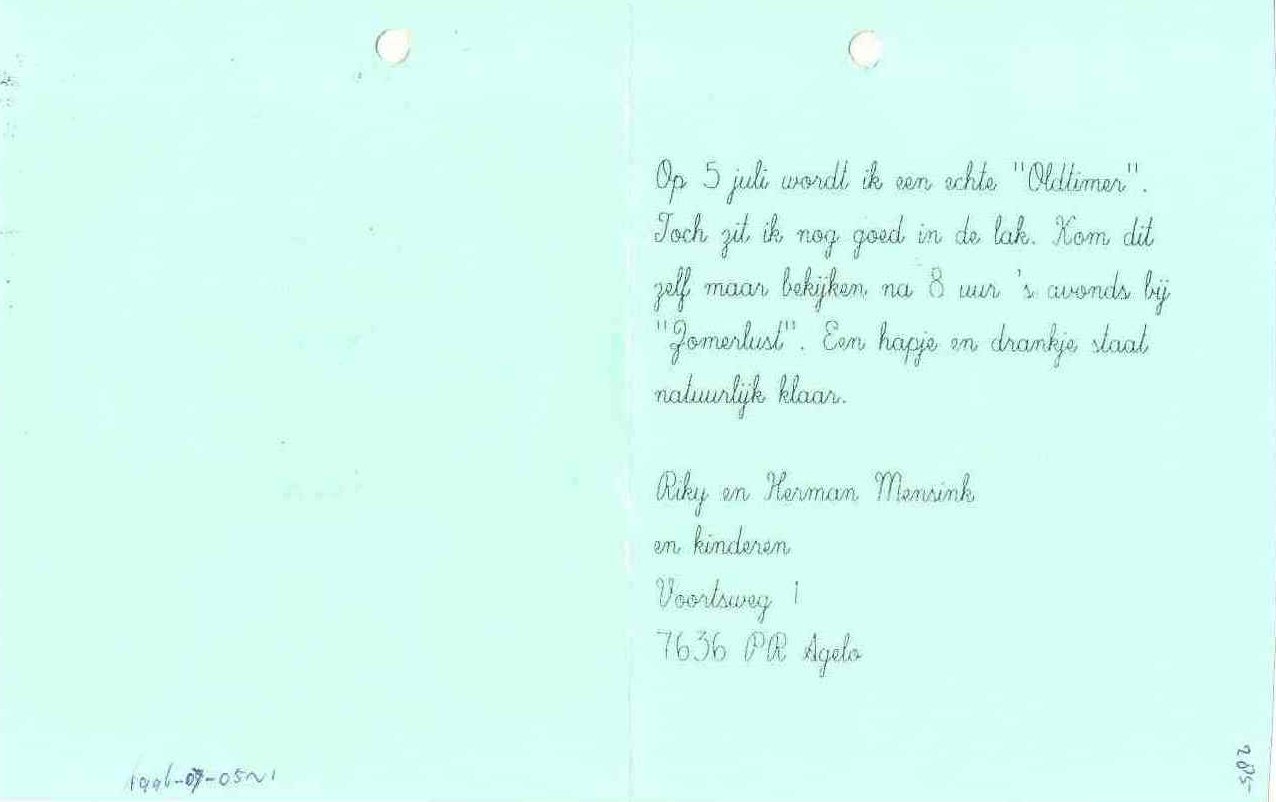 Op 5 juli wordt ik een echte "Oldtimer".
Toch zit ik nog goed in de lak. Kom dit
zelf maar bekijken, na 8 uur 's avonds bij
"Zomerlust". Een hapje en drankje staat
natuurlijk klaar.
Riky en Herman Mensink
en kinderen
Voortsweg 1
7636 PR Agelo
1996-07-05~1